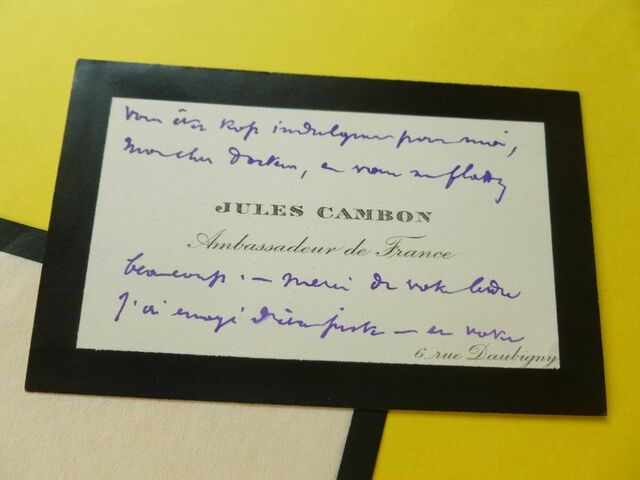 vous êtes trop indulgent pour moi,
Mon cher Docteur, et vous me flattez
JULES CAMBON
Ambassadeur de France
beaucoup. — Merci de votre lettre
j'ai été — et votre
6, rue Daubigny